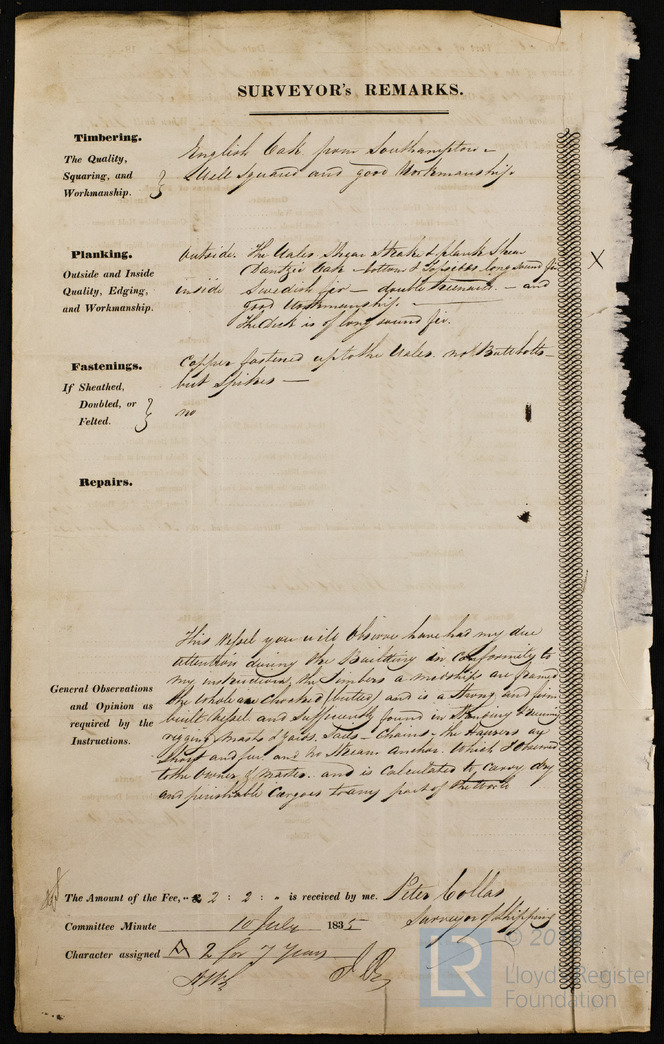 SURVEYOR's REMARKS.
Timbering.
The Quality,
Squaring, and
Workmanship.
English Oak from Southampton -
Well Squared and good Workmanship.
Planking.
Outside and Inside
Quality, Edging,
and Workmanship.
Outside. The Wales Shear Strake & plank Shear
Dantzic Oak - bottom & Topsides long Sound fir
inside Swedish fir - double - and
good Workmanship. -
The Deck is of long sound fir.
X
Fastenings.
If Sheathed,
Doubled, or
Felted.
Copper fastened up to the Wales. not Butt bolts -
but Spikes -
no
Repairs.
General Observations
and Opinion as
required by the
Instructions.
This Vessel you will observe have had my due
attention during the Building in conformity to
my instructions, the Timbers a midships are framed
the whole are Chocked (butted) and is a Strong and firm
built Vessel and Sufficiently found in Standing & running
rigging Masts & Yards. Sails - Chains - the Hawsers are
Short and few. and no Stream Anchor. Which I observed
to the Owner & Master. and is Calculated to carry dry
and perishable Cargoes to any part of the World
The Amount of the Fee, 2 : 2 : " is received by me. Peter Collas
Surveyor of Shipping
Committee Minute 10 July 1835
Character assigned A 2 for 7 Years
LR
Lloyd's Register
Foundation